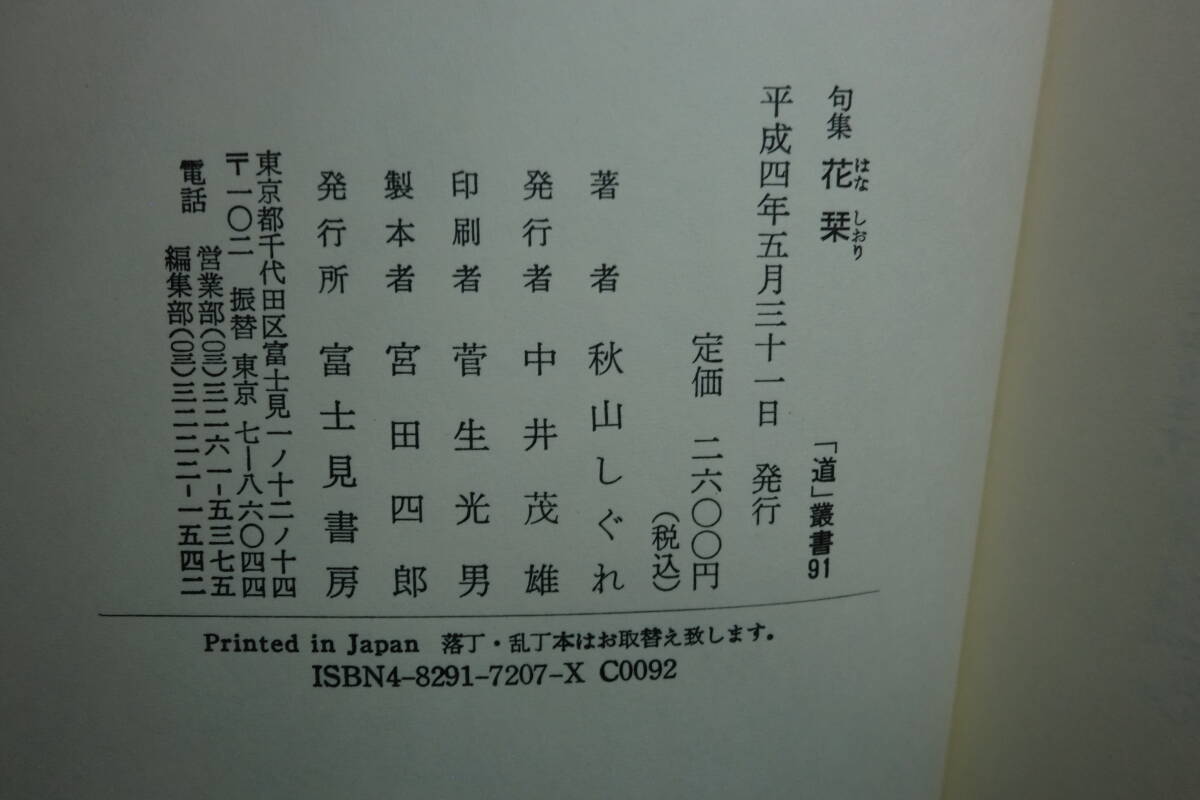 句集 花栞 「道」叢書91
はな しおり
平成四年五月三十一日 発行
定価 二六〇〇円
(税込)
著者 秋山しぐれ
発行者 中井茂雄
印刷者 菅生光男
製本者 宮田四郎
発行所 富士見書房
東京都千代田区富士見一ノ十二ノ十四
〒一〇二 振替 東京 七―八六〇四四
電話 営業部(〇三)三二六一―五三七五
編集部(〇三)三二二二―一五四二
Printed in Japan 落丁・乱丁本はお取替え致します。
ISBN4-8291-7207-X C0092